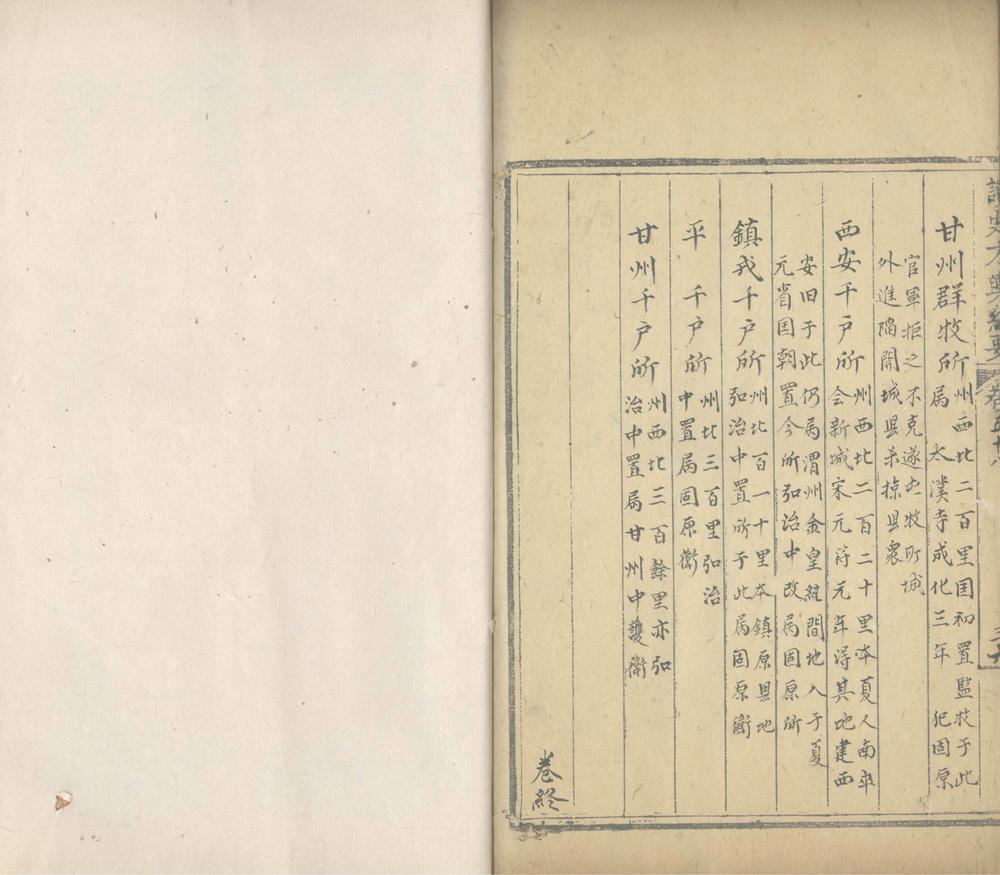 讀史方輿紀要
甘州群牧所州西北二百里国初置監牧于此
属太濮寺成化三年 犯固原
官軍拒之不克遂
牧所城
外進陷開城县杀掠县衆
西安千户所州西北二百二十里本夏人南牟
会新城宋元符元年得其地建西
安旧于此仍属渭州金皇統間地入于夏
元省国朝置今所弘治中改属固原所
鎮戎千户所州北百一十里本鎮原县地
弘治中置所于此属固原衛
平 千户所州北三百里弘治
中置属固原衛
甘州千户所州西北三百餘里亦弘
治中置属甘州中護衛
卷終